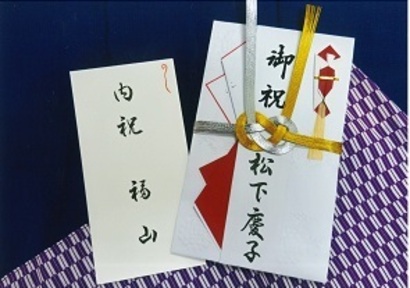 内祝
福山
御祝
松下慶子